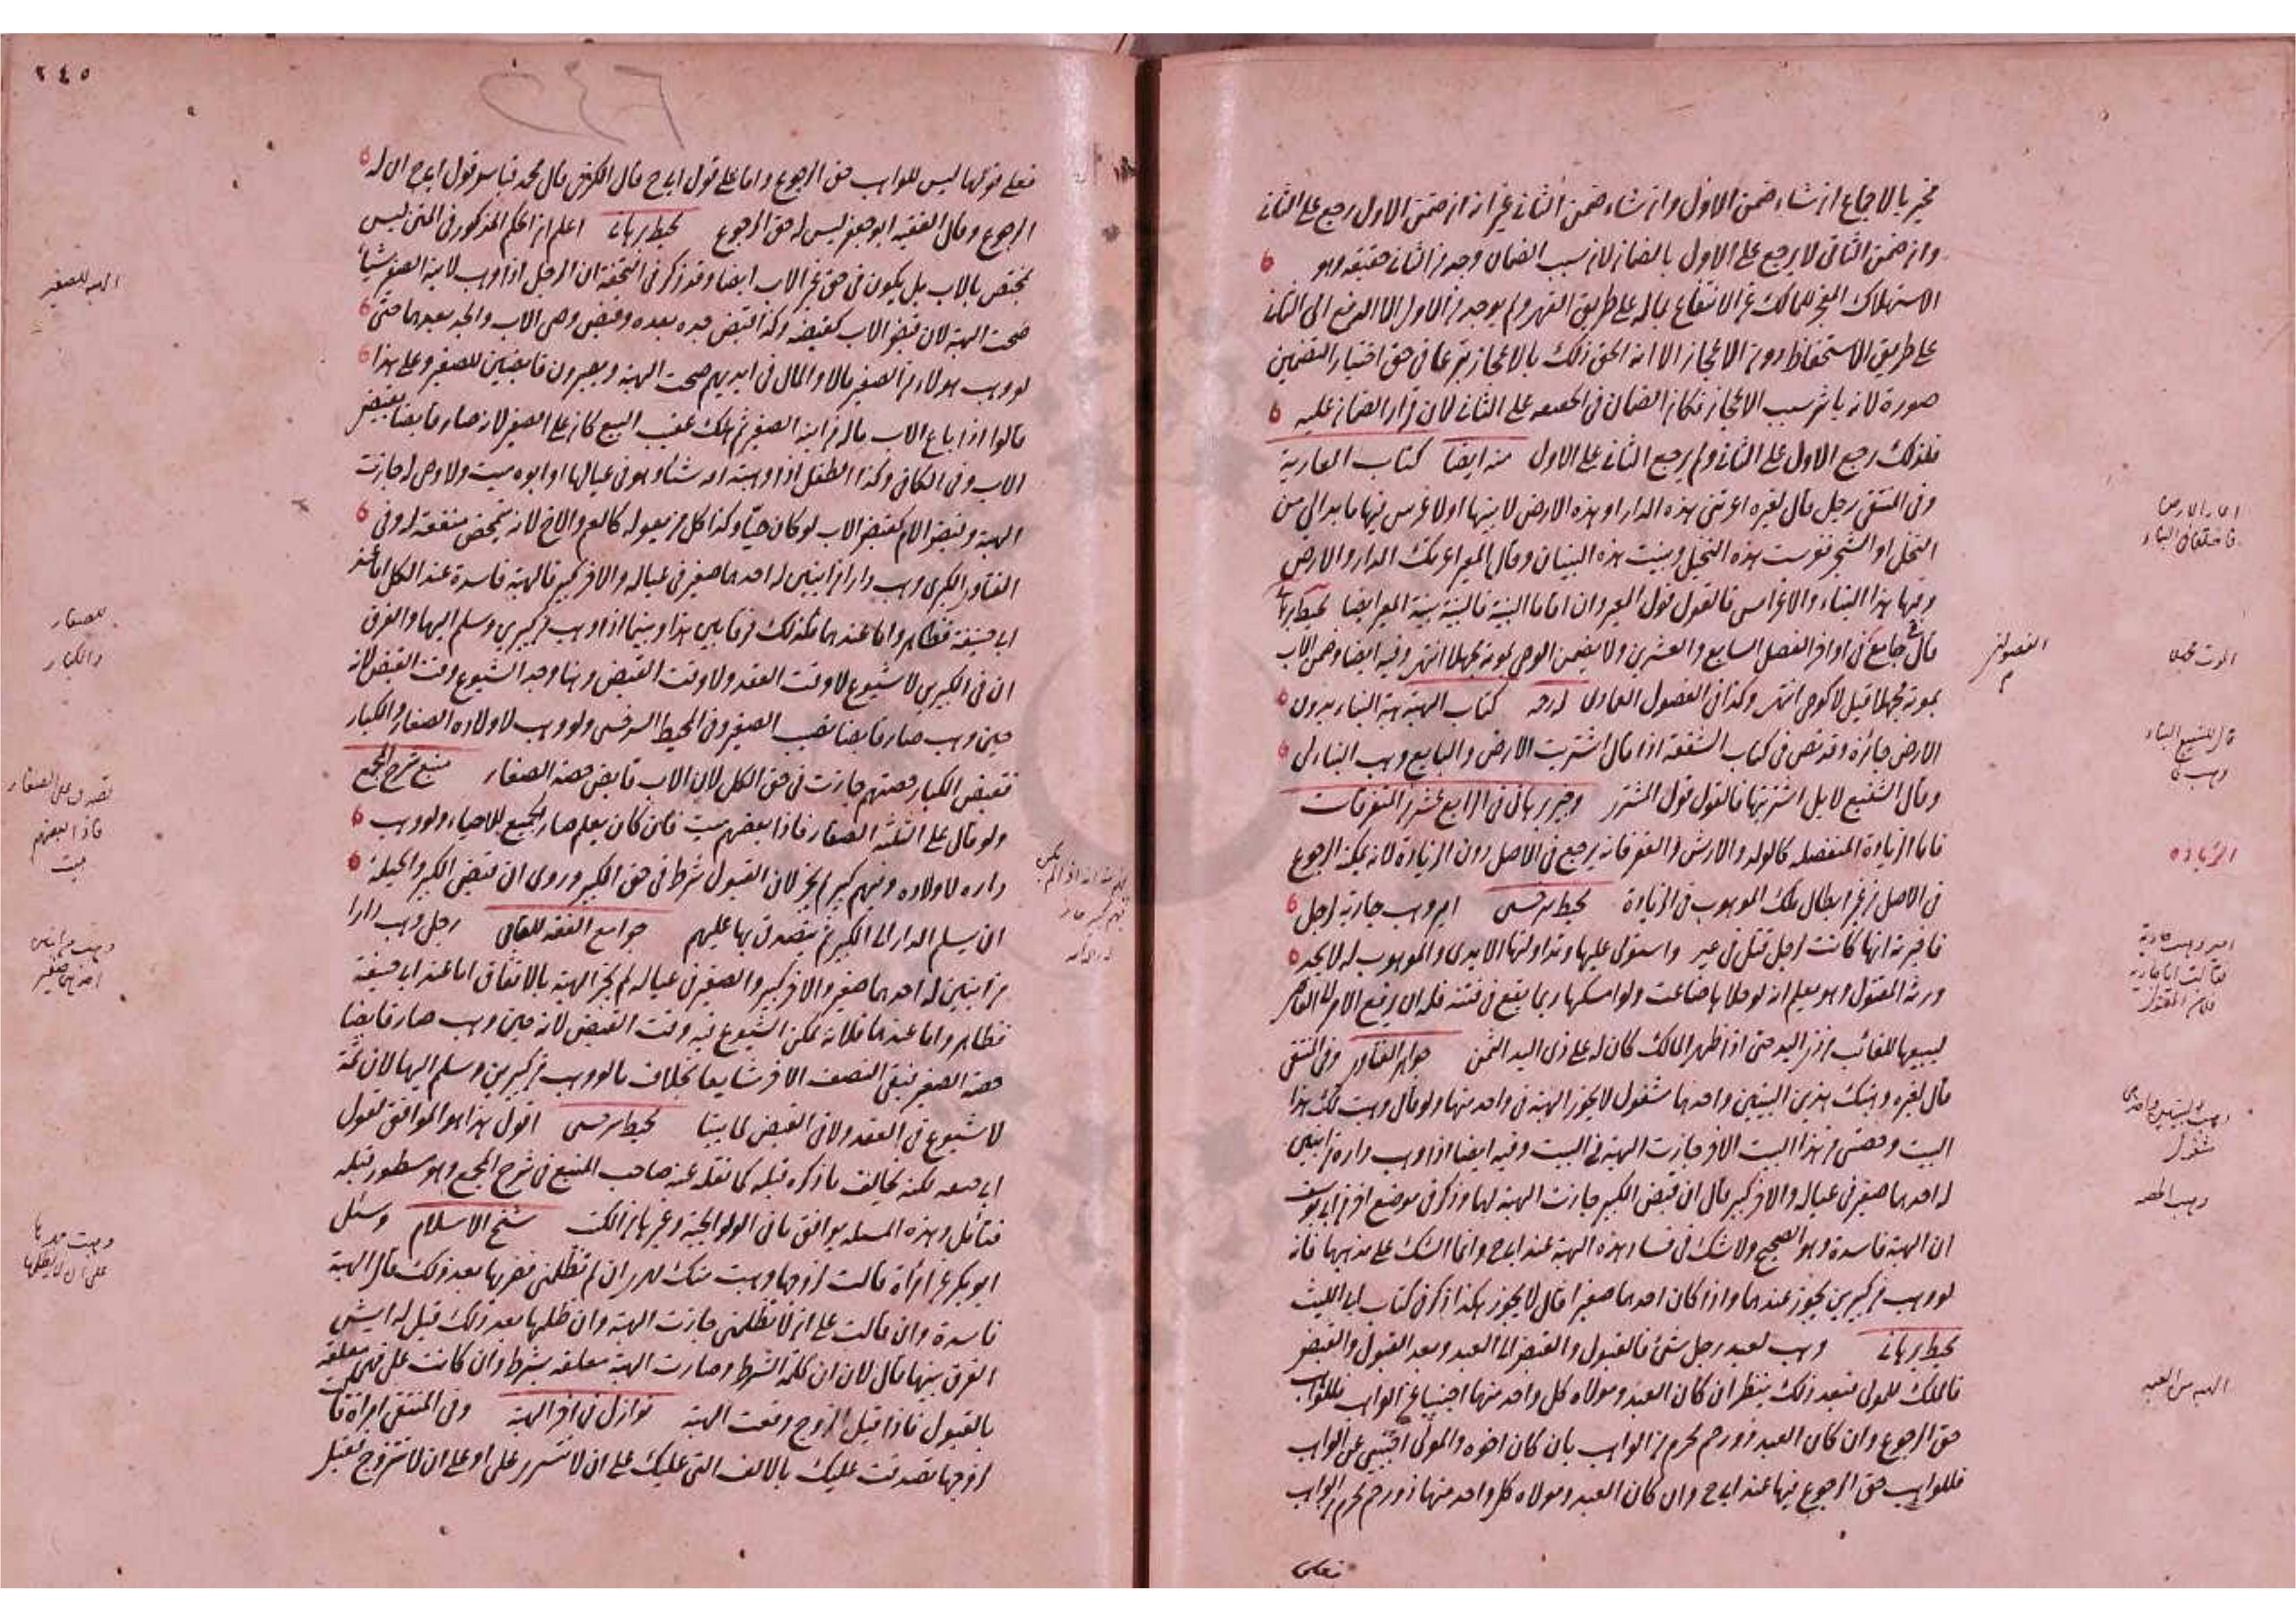 مخير بالاجماع ان شاء ضمن الاول وان شاء ضمن الثاني غير انه ان ضمن الاول رجع على الثاني
وان ضمن الثاني لا يرجع على الاول بالضمان لان سبب الضمان وجد من الثاني حقيقة وهو
الاستهلاك المعجز للمالك عن الانتفاع بماله على طريق القهر ولم يوجد من الاول الا الدفع الى الثاني
على طريق الاستحفاظ دون الاعجاز الا انه الحق ذلك بالاعجاز شرعا في حق اختيار التضمين
صورة لانه باشر سبب الاعجاز فكان الضمان في الحقيقة على الثاني لان قرار الضمان عليه
فلذلك رجع الاول على الثاني ولم يرجع الثاني على الاول منه ايضا كتاب العارية
وفي المنتقى رجل قال لغيره اعرتني هذه الدار او هذه الارض لابنيها او لاغرس فيها ما بدا لي من
النخل او الشجر فغرست هذه النخيل وبنيت هذه البنيان وقال المعير اعرتك الدار والارض
وفيها هذا البناء والاغراس فالقول قول المعير وان اقاما البينة فالبينة بينة المعير ايضا محيط برهاني
قال في جامع في اواخر الفصل السابع والعشرين ولا يضمن الوصي بموته مجهلا انتهى وفيه ايضا وضمن الاب
بموته مجهلا قيل لا كوصي انتهى وكذا في الفصول العمادي كتاب الهبة هبة البناء بدون
الارض جائزة وقد نص في كتاب الشفعة اذا قال اشتريت الارض والبايع وهب البناء لي
وقال الشفيع لا بل اشتريتها فالقول قول المشتري وجيز برهاني في الرابع عشر من المتفرقات
فاما الزيادة المنفصلة كالولد والارش والعقر فانه يرجع في الاصل دون الزيادة لانه يمكنه الرجوع
في الاصل من غير ابطال ملك الموهوب في الزيادة محيط سرخسي امير وهب جارية لرجل
فاخبرته انها كانت لرجل قتل في عير واستولى عليها وتداولتها الايدي والموهوب له لا يجد
ورثة المقتول وهو يعلم انه لو خلاها ضاعت ولو امسكها ربما يقع في فتنة فله ان يرفع الامر الى القاضي
ليبيعها للغائب من ذي اليد حتى اذا ظهر المالك كان له على ذي اليد الثمن جواهر الفتاوى وفي المنتقى
قال لغيره وهبتك هذين البيتين واحدهما مشغول لا يجوز الهبة في واحد منهما ولو قال وهبت لك هذا
البيت وحصتي من هذا البيت الاخر جازت الهبة في البيت وفيه ايضا اذا وهب داره من ابنين
له احدهما صغير في عياله والاخر كبير قال ان قبض الكبير جازت الهبة لهما وذكر في موضع اخر عن ابي يوسف
ان الهبة فاسدة وهو الصحيح ولا شك في فساد هذه الهبة عند ابي ح وانما الشك على مذهبهما فانه
لو وهب من كبيرين يجوز عندهما واذا كان احدهما صغيرا قال لا يجوز هكذا ذكر في كتاب ابي الليث
محيط برهاني وهب لعبد رجل شيئ فالقبول والقبض الى العبد وبعد القبول والقبض
فالملك للمولى فبعد ذلك ينظر ان كان العبد ومولاه كل واحد منهما اجنبيا عن الواهب فللواهب
حق الرجوع وان كان العبد ذو رحم محرم من الواهب بان كان اخوه والمولى اجنبي عن الواهب
فللواهب حق الرجوع فيها عند ابي ح وان كان العبد ومولاه كل واحد منهما ذو رحم محرم من الواهب
فعلى
الموت مجهلا
الزيادة
مشغول
الهبة من العبد
٢٤٥
فعلى قولهما ليس للواهب حق الرجوع واما على قول ابي ح قال الكرخي قال محمد قياس قول ابي ح ان له
الرجوع وقال الفقيه ابو جعفر ليس له حق الرجوع محيط برهاني اعلم ان الحكم المذكور في المتن ليس
بمختص بالاب بل يكون في حق غير الاب ايضا وقد ذكر في التحفة ان الرجل اذا وهب لابنه الصغير شيئا
صحت الهبة لان قبض الاب كقبضه وكذا قبض جده بعده وقبض وصي الاب والجد بعدهما حتى
لو وهب هولاء من الصغير مالا والمال في ايديهم صحت الهبة ويصيرون قابضين للصغير وعلى هذا
قالوا اذا باع الاب ماله من ابنه الصغير ثم هلك عقيب البيع كان على الصغير لانه صار قابضا بقبض
الاب وفي الكافي وكذا الطفل اذا وهبته امه شيئا وهو في عيالها وابوه ميت ولا وصي له جازت
الهبة وقبض الام كقبض الاب لو كان حيا وكذا كل من يعوله كالعم والاخ لانه يتمحض منفعة له وفي
الفتاوى الكبرى وهب دارا من ابنين له احدهما صغير في عياله والاخر كبير فالهبة فاسدة عند الكل اما عند
ابي حنيفة فظاهر واما عندهما فكذلك فرقا بين هذا وبينما اذا وهب من كبيرين وسلم اليهما والفرق
ان في الكبيرين لا شيوع لا وقت العقد ولا وقت القبض وهنا وجد الشيوع وقت القبض لانه
حين وهب صار قابضا نصيب الصغير وفي المحيط السرخسي ولو وهب لاولاده الصغار والكبار
فقبض الكبار حصتهم جازت في حق الكل لان الاب قابض حصة الصغار منبع شرح المجمع
ولو قال على الثلثة الصغار فاذا بعضهم ميت فان كان يعلم صار الجميع للاحياء ولو وهب
داره لاولاده وفيهم كبير لم يجز لان القبول شرط في حق الكبير وروي ان قبض الكبير والحيلة
ان يسلم الدار الى الكبير ثم يتصدق بها عليهم جوامع الفقه للعتابي رجل وهب دارا
من ابنين له احدهما صغير والاخر كبير والصغير في عياله لم يجز الهبة بالاتفاق اما عند ابي حنيفة
فظاهر واما عندهما فلانه تمكن الشيوع فيه وقت القبض لانه حين وهب صار قابضا
حصة الصغير فبقي النصف الاخر شايعا بخلاف ما لو وهب من كبيرين وسلم اليهما لان ثمة
لا شيوع في العقد ولا في القبض لما بينا محيط سرخسي اقول هذا هو الموافق لقول
ابي حنيفة لكنه يخالف ما ذكره قبله كما نقله عنه صاحب المنبع في شرح المجمع وهو مسطور قبله
فتأمل وهذه المسئلة يوافق ما في الولوالجية وغيرها من الكتب شيخ الاسلام وسئل
ابو بكر عن امرأة قالت لزوجها وهبت منك المهر ان لم تظلمني فضربها بعد ذلك قال الهبة
فاسدة وان قالت على ان لا تظلمني جازت الهبة وان ظلمها بعد ذلك قيل له ايش
الفرق بينهما قال لان ان كلمة الشرط وصارت الهبة معلقة بشرط وان كانت على فهي معلقة
بالقبول فاذا قبل الزوج وقعت الهبة نوازل في اخر الهبة وفي المنتقى امرأة قالت
لزوجها تصدقت عليك بالالف التي عليك على ان لا تتسرر علي او على ان لا تتزوج فقبل
الهبة للصغير
للصغار
والكبار
تصدق على الصغار
فاذا بعضهم
ميت
وهب من ابنين
احدهما صغير
وهبت مهرها
على ان لا يظلمها